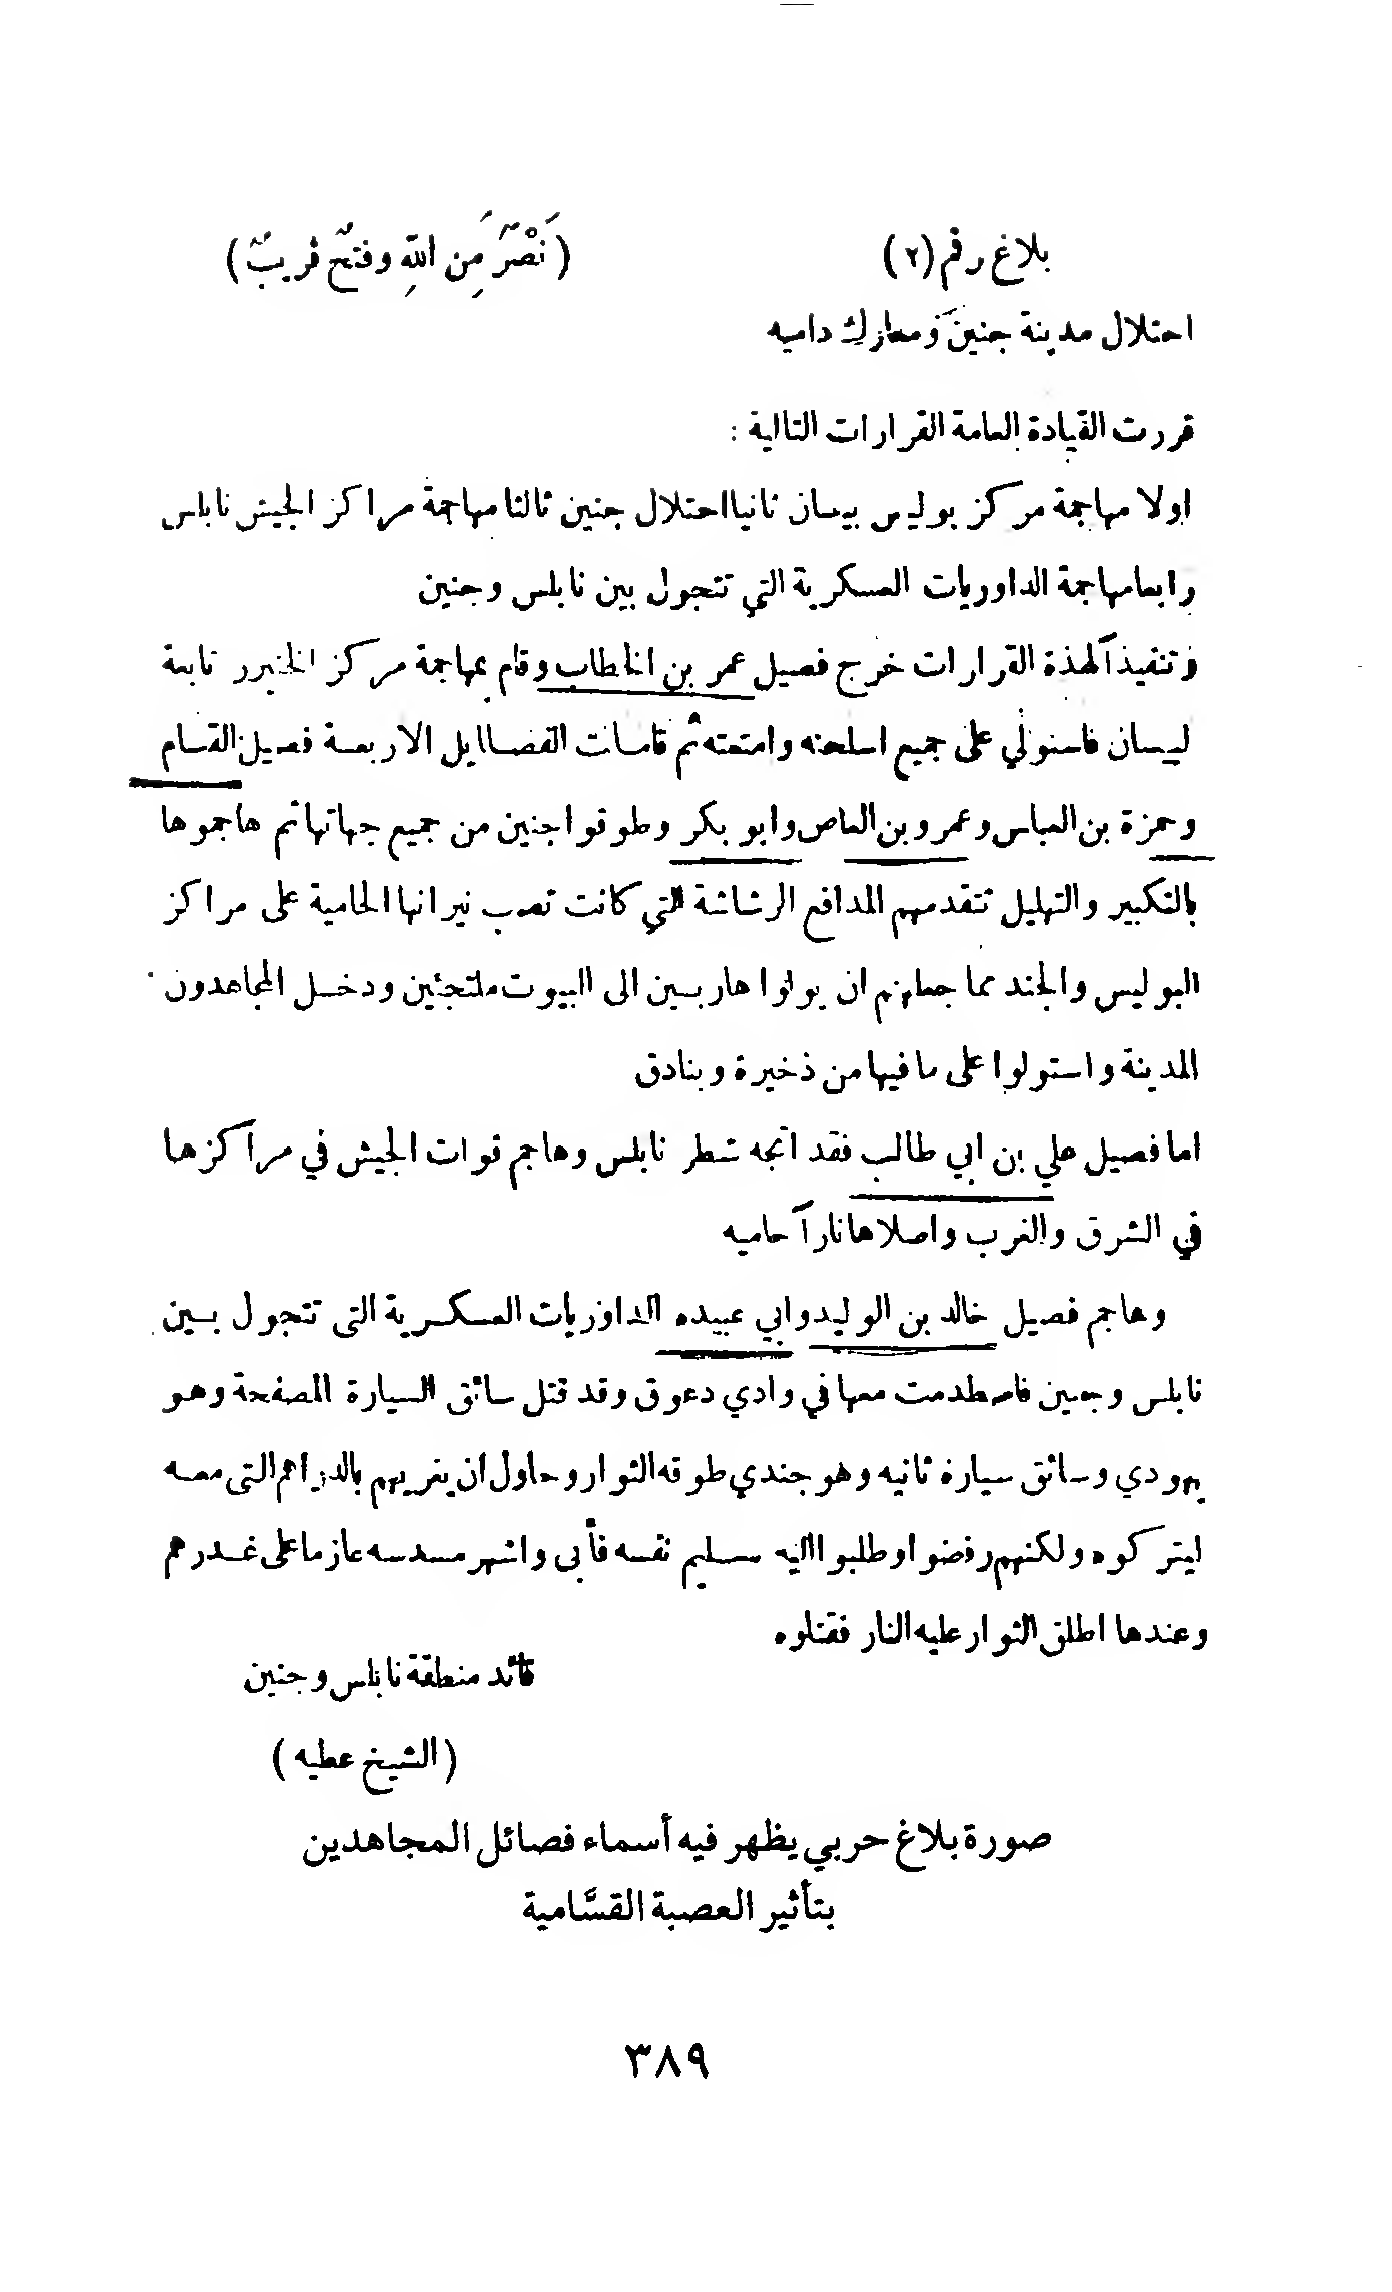 بلاغ رقم (٢) (نَصْرٌ مِن اللهِ وفتحٌ قريبٌ)
احتلال مدينة جنين ومعارك داميه
قررت القيادة العامة القرارات التالية :
اولا مهاجمة مركز بوليس بيسان ثانيا احتلال جنين ثالثا مهاجمة مراكز الجيش نابلس
رابعا مهاجمة الداوريات العسكرية التي تتجول بين نابلس وجنين
وتنفيذاً لهذه القرارات خرج فصيل عمر بن الخطاب وقام بمهاجمة مركز تابعة
لبيسان فاستولي على جميع اسلحته وامتعته ثم قامات الفصاايل الاربعة فصيل القسام
وحمزة بن العباس وعمرو بن العاص وابو بكر وطوقوا جنين من جميع جهاتها ثم هاجموها
بالتكبير والتهليل تتقدمهم المدافع الرشاشة التي كانت تصب نيرانها الحامية على مراكز
البوليس والجند مما جعلهم ان يولوا هاربين الى البيوت ملتجئين ودخل المجاهدون
المدينة واستولوا على ما فيها من ذخيرة وبنادق
اما فصيل علي بن ابي طالب فقد اتجه شطر نابلس وهاجم قوات الجيش في مراكزها
في الشرق والغرب واصلاها ناراً حاميه
وهاجم فصيل خالد بن الوليد وابي عبيده الداوريات العسكرية التى تتجول بين
نابلس وجنين فاصطدمت معها في وادي دعوق وقد قتل سائق السيارة المصفحة وهو
يهودي وسائق سيارة ثانيه وهو جندي طوقه الثوار وحاول ان يغريهم بالدراهم التى معه
ليتركوه ولكنهم رفضوا وطلبوا اليه تسليم نفسه فأبى واشهر مسدسه عازما على غدرهم
وعندها اطلق الثوار عليه النار فقتلوه
قائد منطقة نابلس وجنين
(الشيخ عطيه)
صورة بلاغ حربي يظهر فيه أسماء فصائل المجاهدين
بتأثير العصبة القسَّامية
٣٨٩